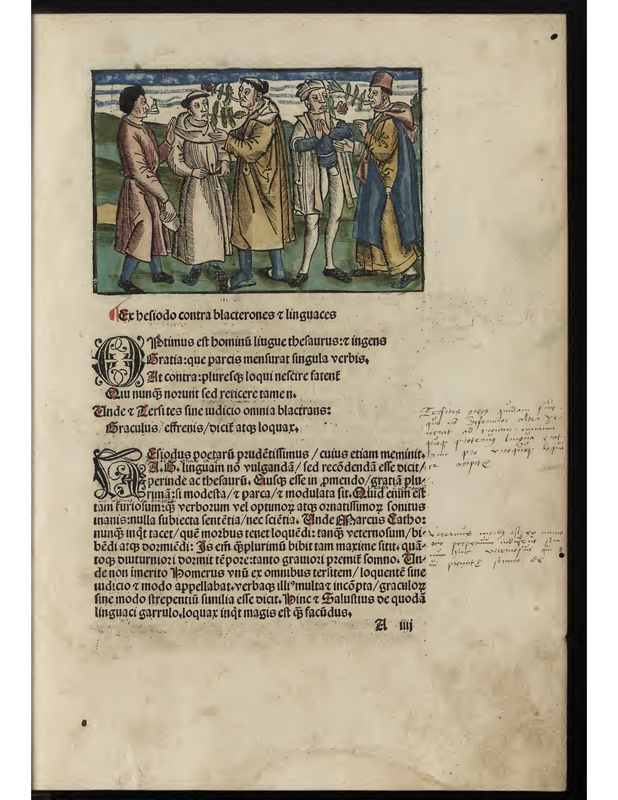 Ex hesiodo contra blacterones ⁊ linguaces
OPtimus est hominū lingue thesaurus: ⁊ ingens
Gratia: que parcis mensurat singula verbis.
At contra: plures qꝫ loqui nescire fatent̄
Qui nunqꝫ norunt sed reticere tamen.
Unde ⁊ Tersites sine iudicio omnia blactrans:
Graculus / effrenis / dicit̄ atqꝫ loquax.
HEsiodus poetarū prudētissimus / cuius etiam meminit.
A. G. linguam nō vulgandā / sed recōdendā esse dicit /
perinde ac thesaurū. Eiusqꝫ esse in ꝓmendo / gratiā plu-
rimā: si modesta / ⁊ parca / ⁊ modulata sit. Quid enim est
tam furiosum: qꝫ verborum vel optimoꝝ atqꝫ ornatissimoꝝ sonitus
inanis: nulla subiecta sentētia / nec sciētia. Unde Marcus Catho:
nunqꝫ inqt tacet / quē morbus tenet loquēdi: tanqꝫ veternosum / bi-
bēdi atqꝫ dormiēdi: Is em̄ qꝫplurimū bibit tam maxime sitit. quā-
toqꝫ diuturniori dormit tēpore: tanto grauiori premit̄ somno. Un-
de non imerito Homerus vnū ex omnibus tersitem / loquentē sine
iudicio ⁊ modo appellabat. verbaqꝫ illiꝰ multa ⁊ incōpta / graculoꝝ
sine modo strepentiū similia esse dicit. Hinc ⁊ Salustius de quodā
linguaci garrulo. loquax inqt magis est qꝫ facūdus.
A iiij